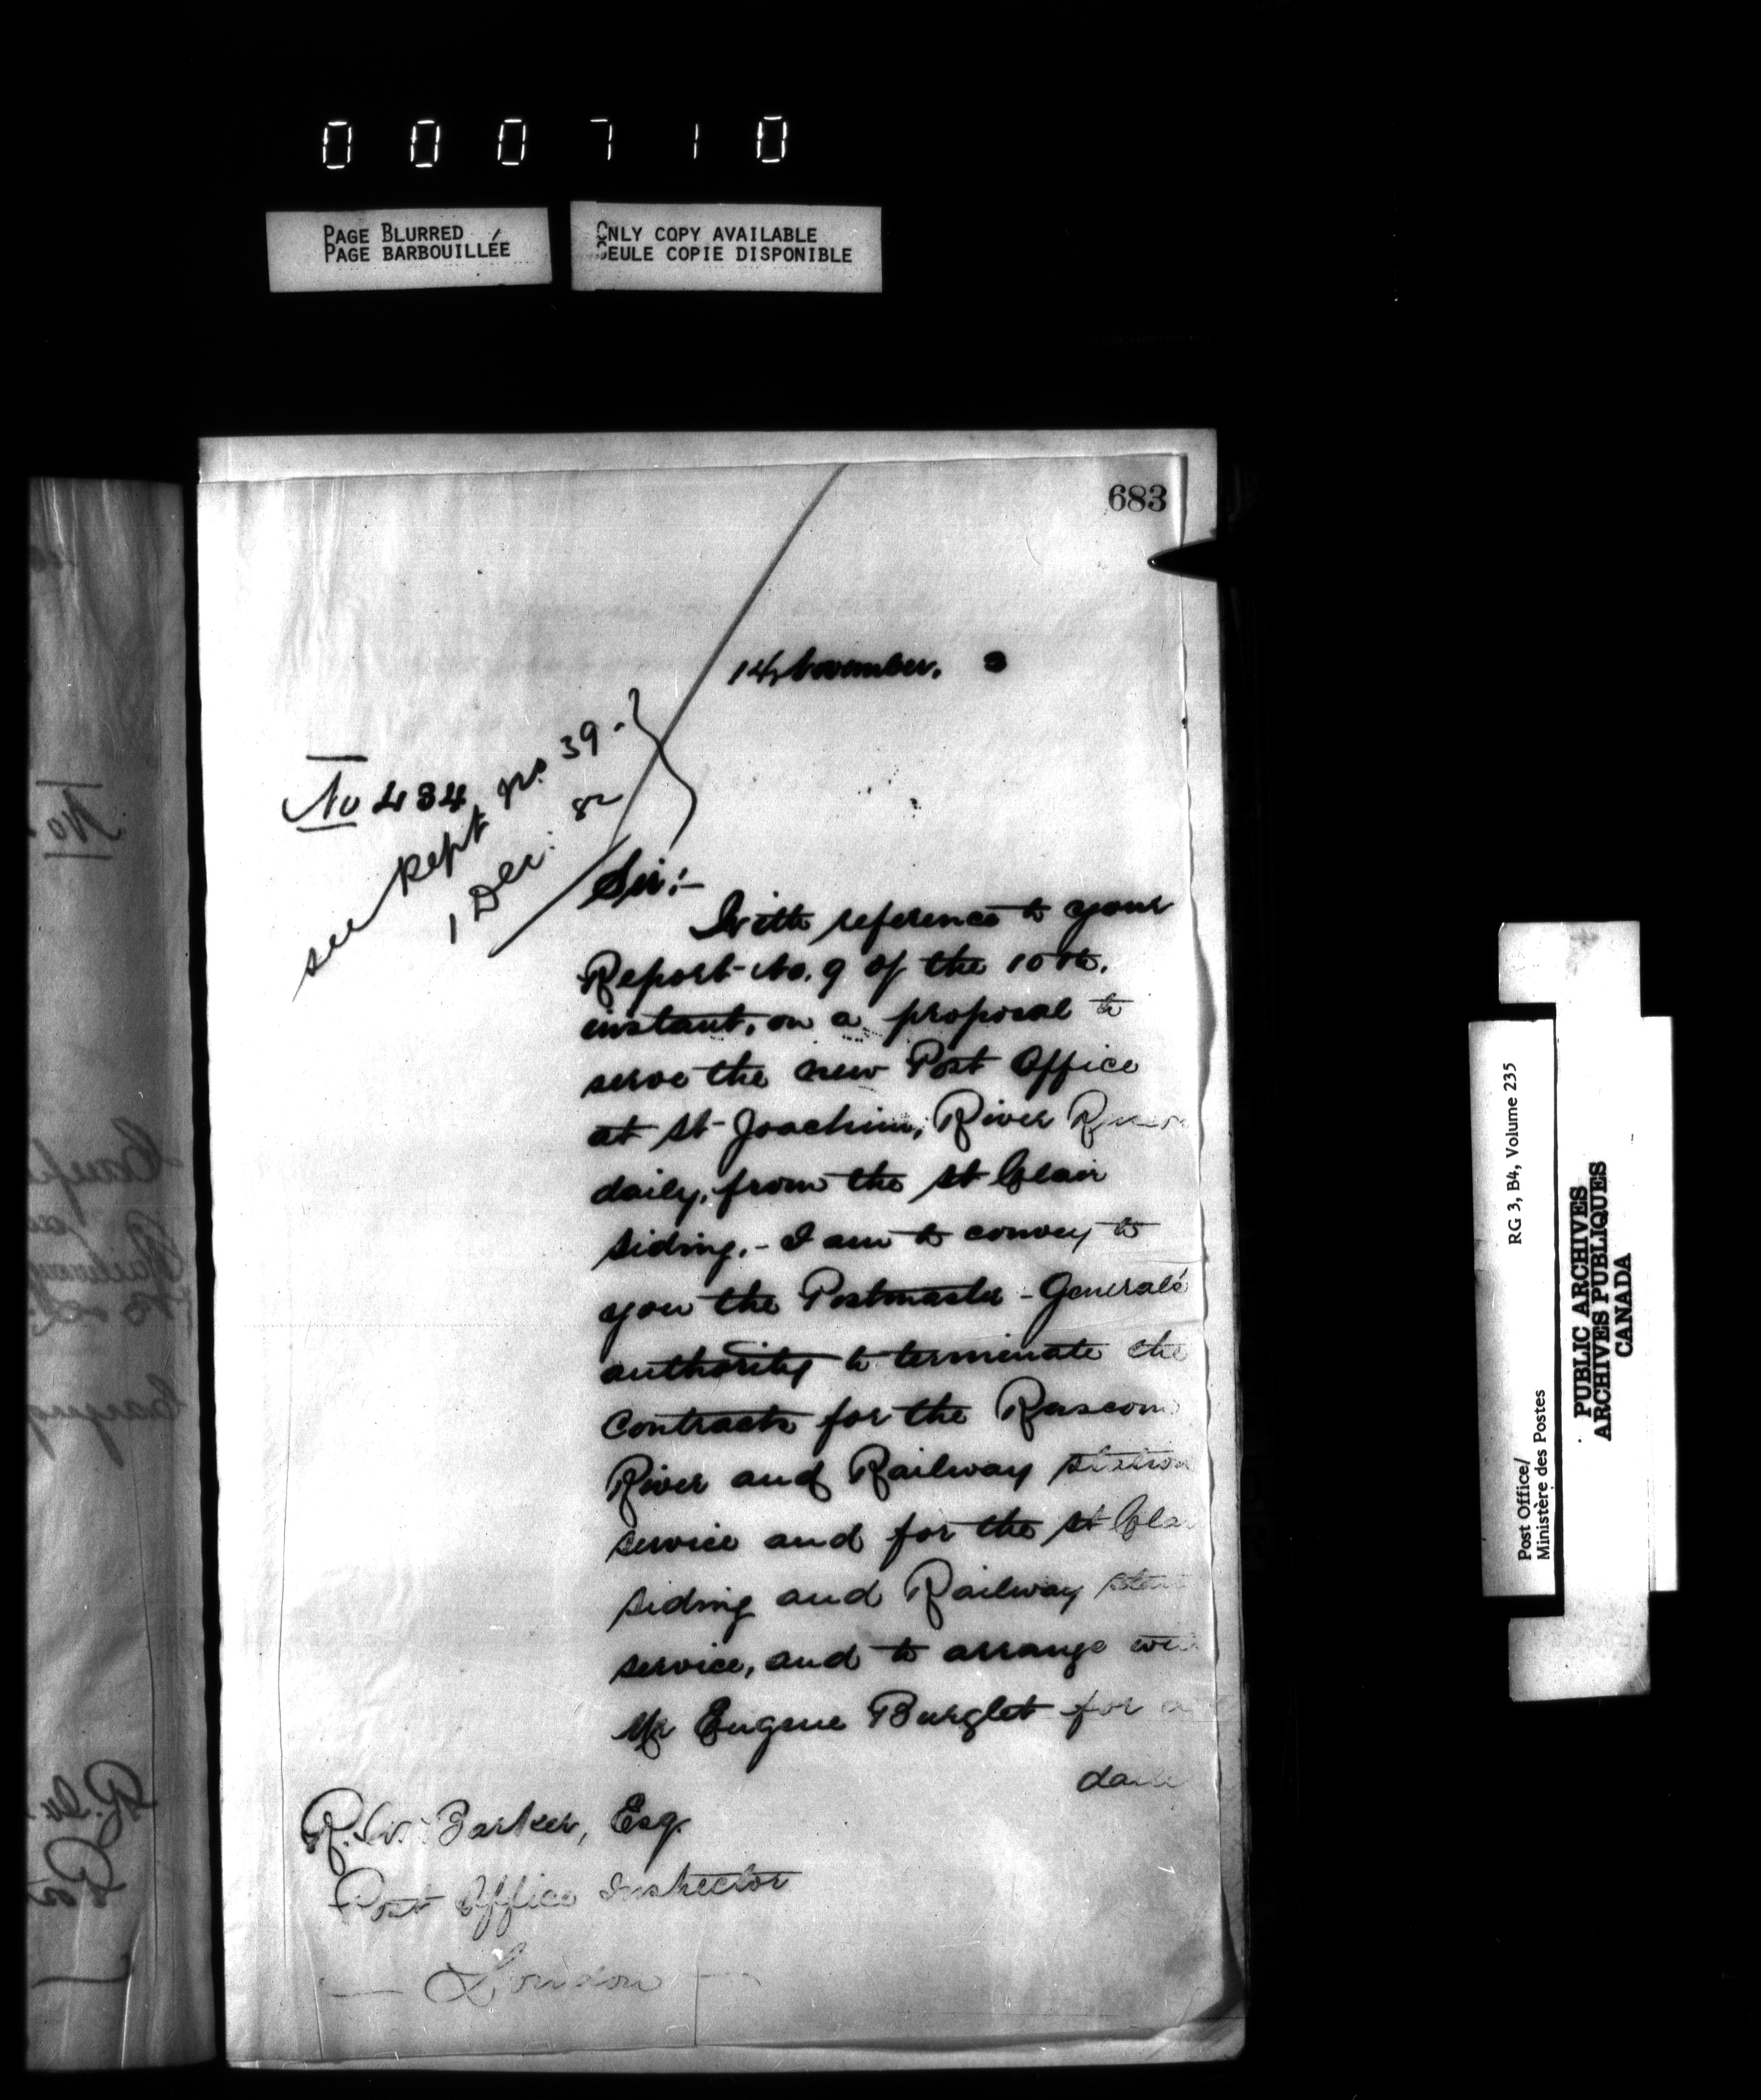 000710
PAGE BLURRED
PAGE BARBOUILLÉE
ONLY COPY AVAILABLE
SEULE COPIE DISPONIBLE
683
14 November.
No 434
see Rept no. 39 -
1 Dec: 82
Sir:-
With reference to your
Report No. 9 of the 10th.
instant, on a proposal to
serve the new Post Office
at St Joachim, River
daily, from the St Clair
siding. - I am to convey to
you the Postmaster-General's
authority to terminate the
contracts for the Ruscom
River and Railway station
service and for the St Clai
siding and Railway
service, and to arrange
Mr Eugene Burglet for a
R. W. Barker, Esq.
Post Office Inspector
London
RG 3, B4, Volume 235
Post Office/
Ministère des Postes
PUBLIC ARCHIVES
ARCHIVES PUBLIQUES
CANADA